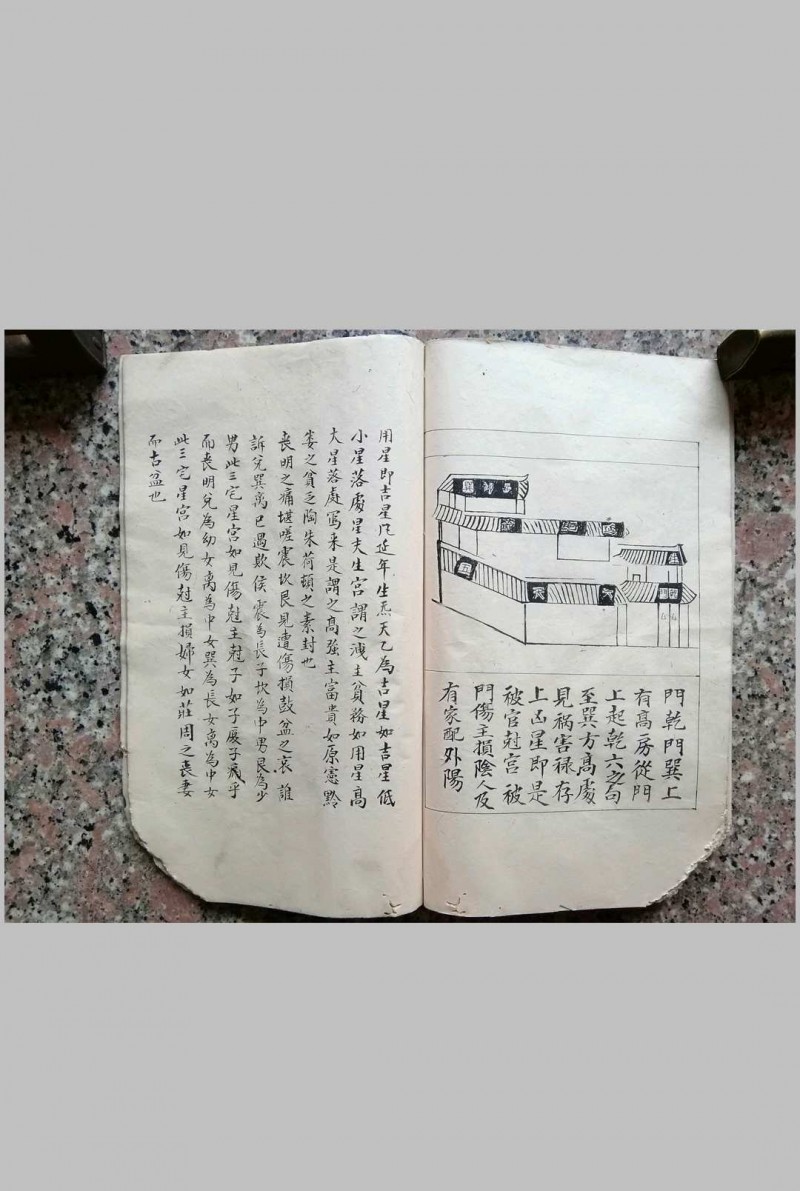 門乾門巽上
有高房從門
上起乾六之句
至巽方高處
見祸害禄存
上凶星即是
被宫尅宫被
門傷主損陰人及
有家配外陽
五
用星即吉星凡延年生炁天乙為吉星如吉星低
小星落處星夫生宮謂之洩主貧務如用星高
大星落處寫来是謂之高強主富貴如原憲黔
娄之貧乏陶朱荷頓之素封也
丧明之痛堪嗟震坎艮見遭傷損鼓盆之哀誰
訴兌巽离已遇欺侯震為長子坎為中男艮為少
男此三宅星宮如見傷尅主尅子如子夏子㓕乎
而丧明兌為幼女离為中女巽為長女离為中女
此三宅星宮如見傷尅主損婦女如莊周之丧妻
而古盆也